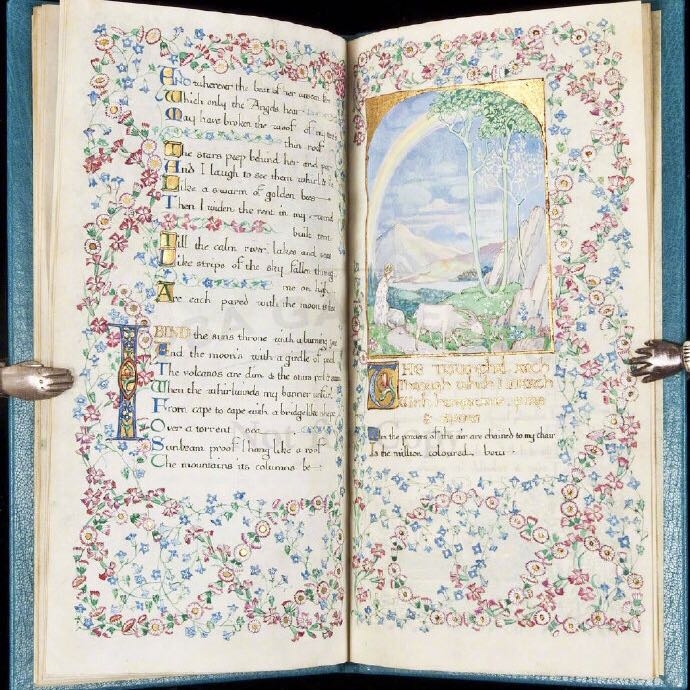 And wherever the beat of her unseen
Which only the Angels hear
May have broken the woof of my
thin roof
The stars peep behind her and
And I laugh to see them whirl &
Like a swarm of golden bees
Then I widen the rent in my wind
built tent
Till the calm river lakes and seas
Like strips of the sky fallen
me on high
Are each paved with the moon &
I BIND the suns throne with a burning
And the moons with a girdle of
The volcanos are dim & the stars
When the whirlwinds my banner
From cape to cape with a bridgelike
Over a torrent sea
Sunbeam proof I hang like a roof
The mountains its columns be
The triumphal arch
Through which I march
With hurricane, fire
& snow
When the powers of the air are chained to my chair
Is the million coloured bow